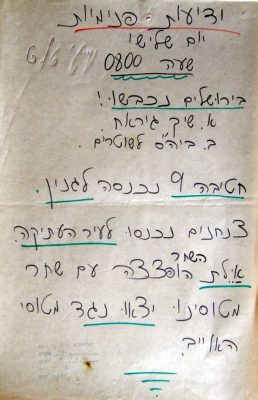 ידיעות פנימיות
יום שלישי
שעה 0800
בירושלים נכבשו!
א. שיק ג'ראח.
ב. ביה״ס לשוטרים.
חטיבה 9 נכנסה לגנין.
צנחנים נכנסו לעיר העתיקה.
אילת הופצצה עם שחר
השחר
מטוסינו יצאו נגד מטוסי
האוייב.